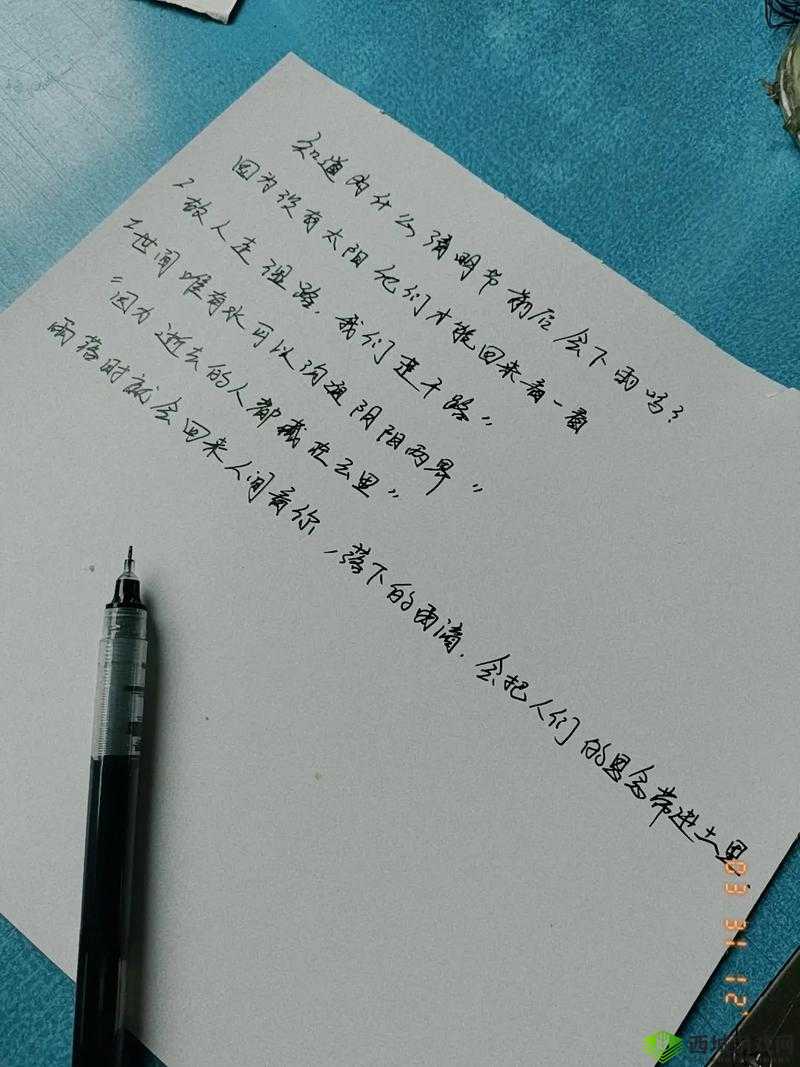 知道为什么清明节前后会下雨吗?
因为没有太阳他们才能回来看一看
"故人走湿路.我们走干路"
"世间唯有水可以沟通阴阳两界"
"因为逝去的人都藏在云里"
雨落时就会回来人间看你,落下的雨滴.会把人们的思念带进土里
03 31 12.
西坤游戏网